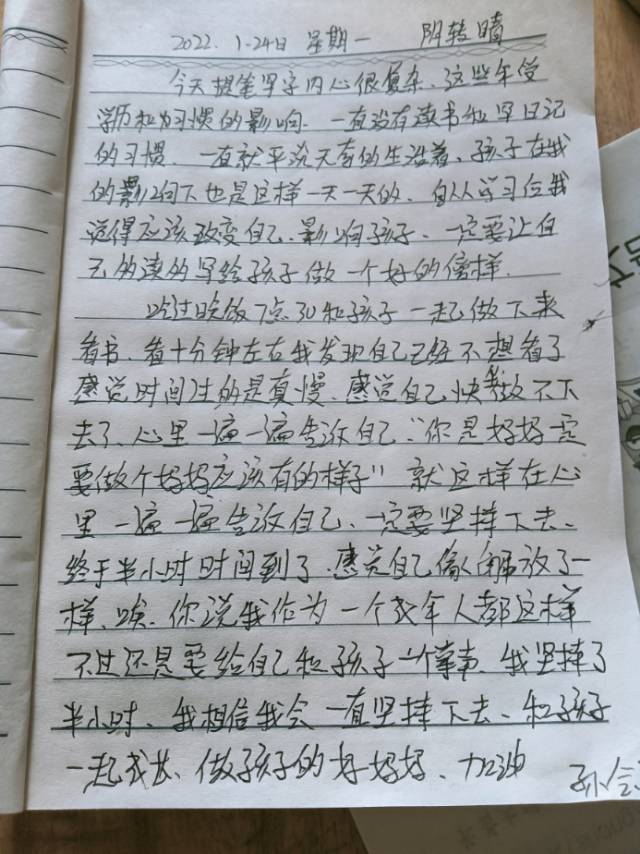 2022. 1.24日 星期一 阴转晴
今天提笔写字内心很复杂、这些年受
学历和为习惯的影响. 一直没有读书和写日记
的习惯. 一直就平淡无奇的生活着、孩子在我
的影响下也是这样一天一天的. 自从学习后我
觉得应该改变自己、影响孩子、一定要让自
己的读的写给孩子做一个好的傍样.
吃过晚饭7点30和孩子一起做下来
看书、看十分钟左右我发现自己已经不想看了
感觉时间过的是真慢、感觉自己快我做不下
去了、心里一遍一遍告诉自己:"你是好好一定
要做个好妈应该有的样子" 就这样在心
里一遍一遍告诉自己、一定要坚持下去、
终于半小时时间到了. 感觉自己像人解放了一
样、唉. 你说我作为一个成年人都这样
不过还是要给自己和孩子一个掌声. 我坚持了
半小时、我相信我会一直坚持下去、和孩子
一起成长、做孩子的好妈妈、加油
孙会